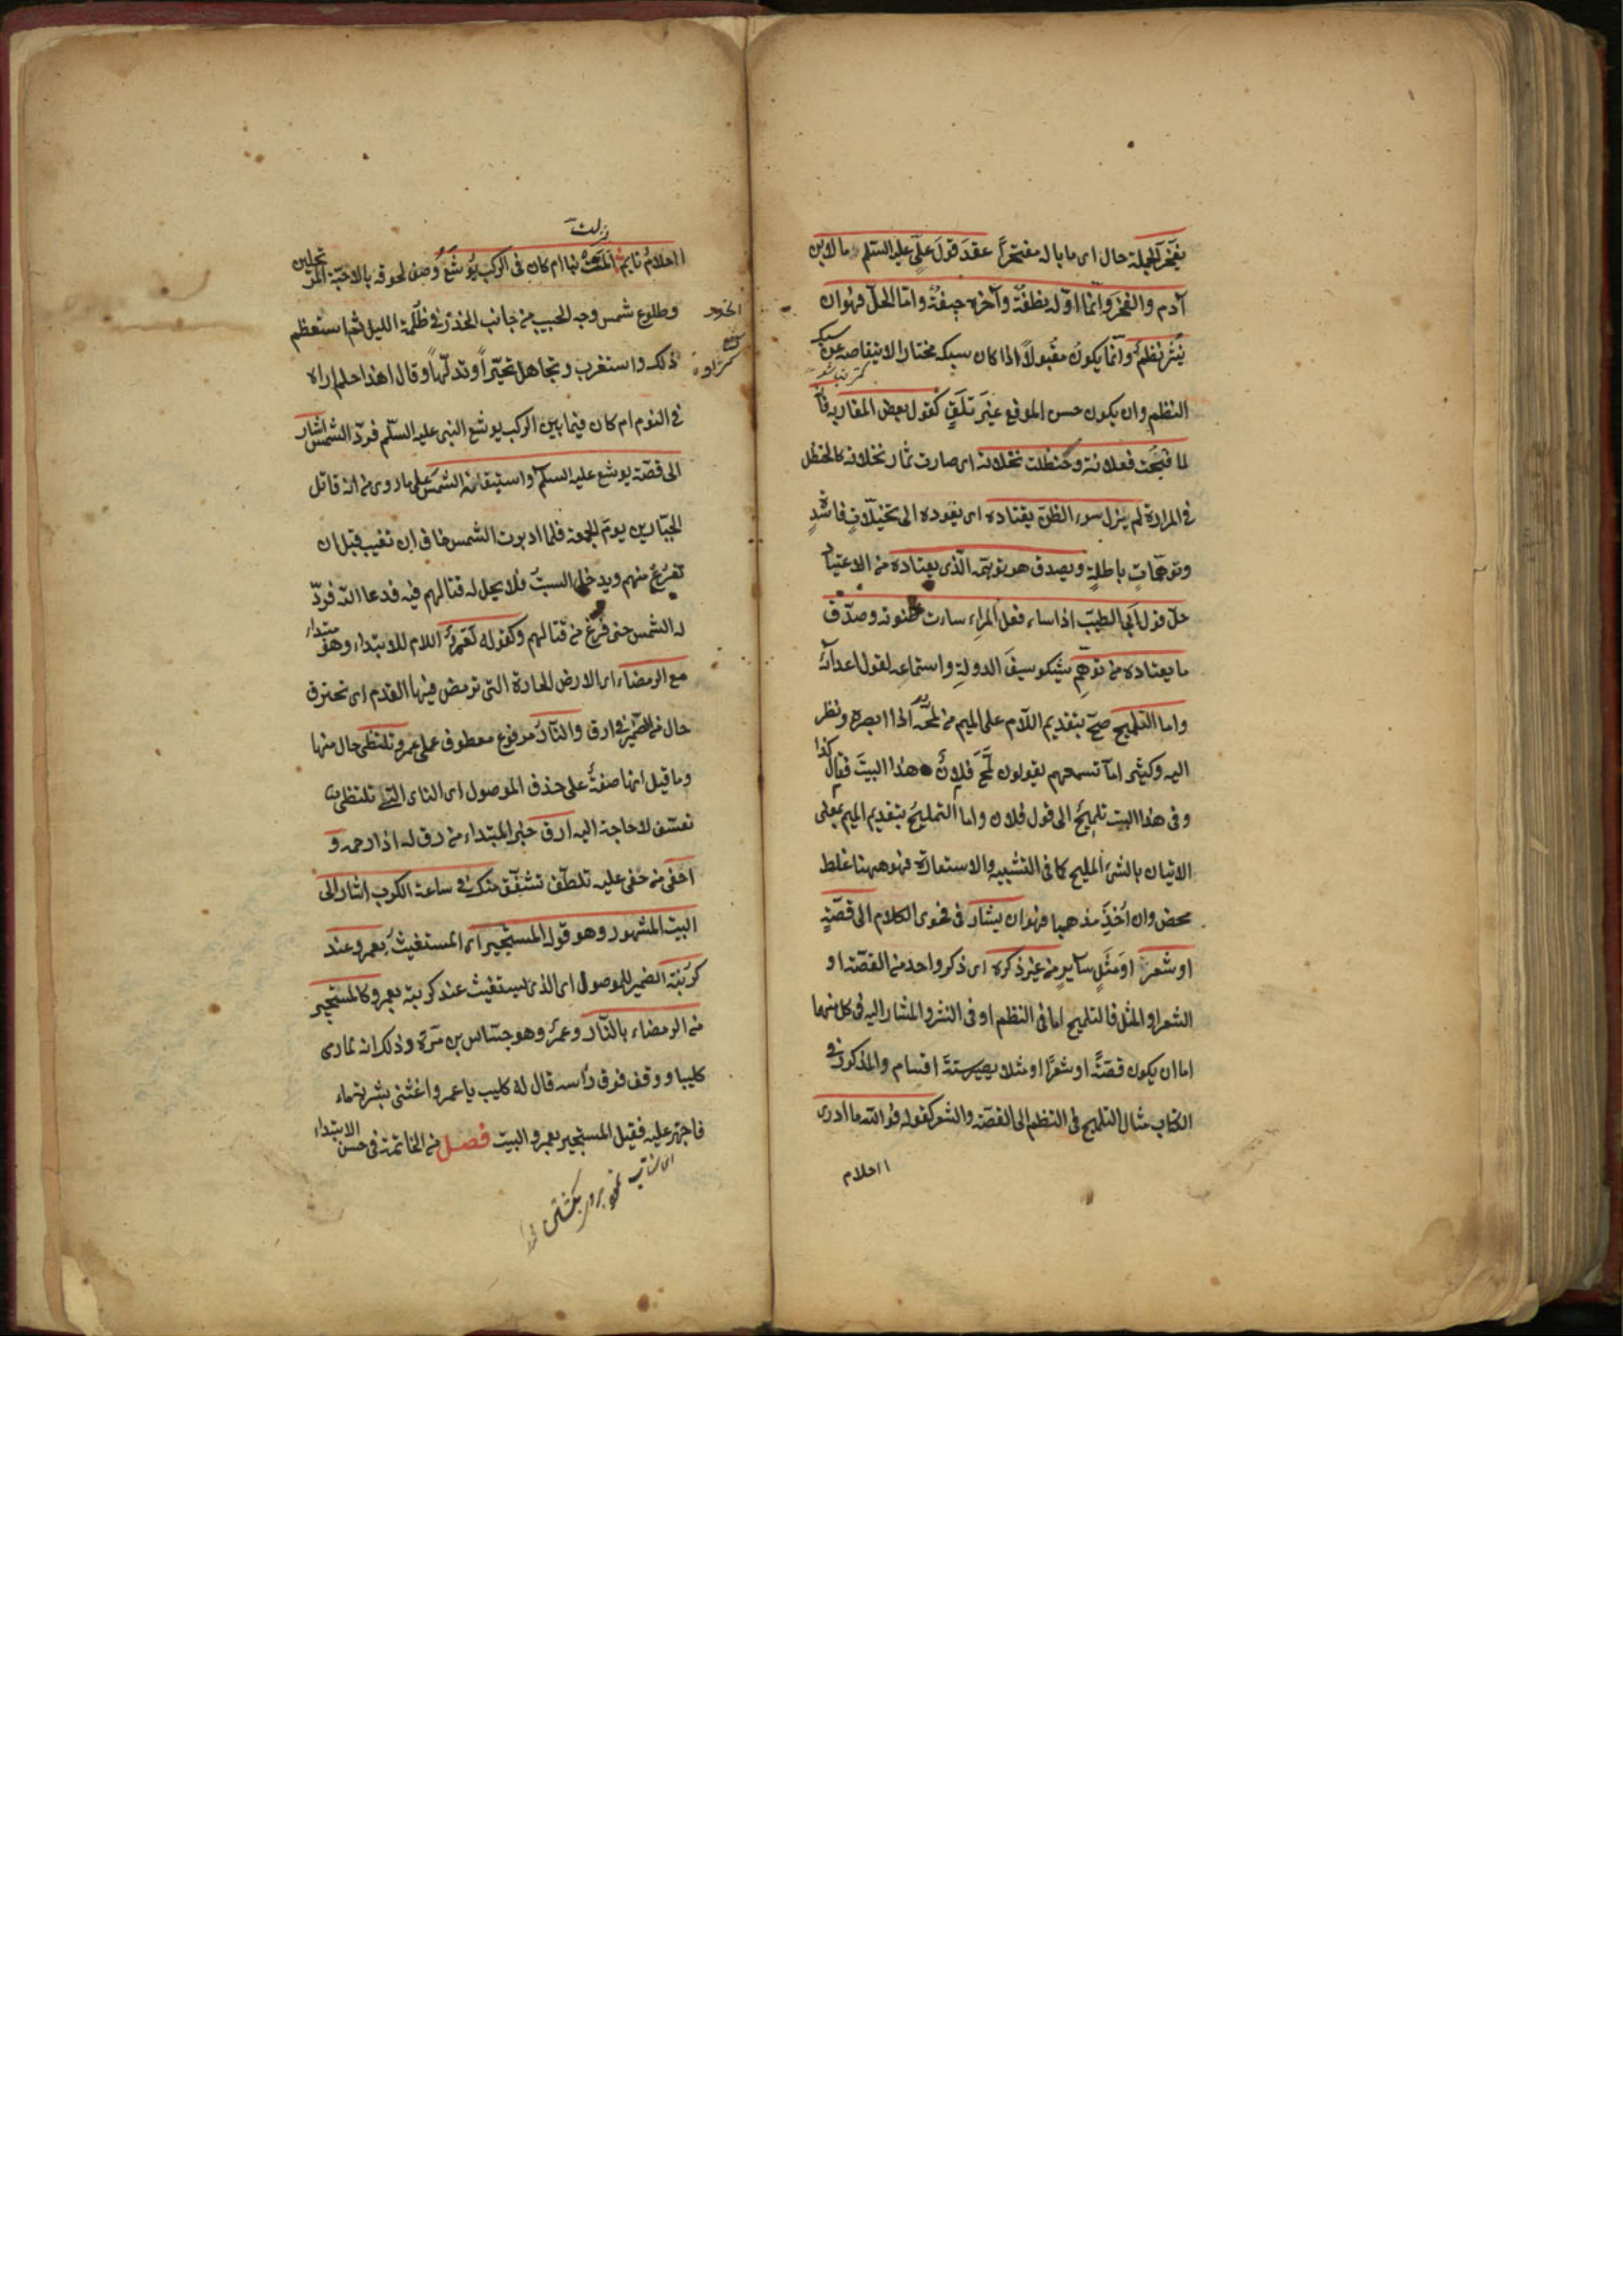 يفخر الجملة حال اى ما باله مفتخرًا عقد قولَ علىٍّ عليه السّلم ما لابن
آدم والفخرَ وانّما اوّله نطفةٌ وآخره جيفةٌ وامّا الحلّ فهو ان
يُنثر نظمٌ وانّما يكون مقبولاً اذا كان سبكه مختارا لا يتقاصر عن سبك
النظم وان يكون حسن الموقع غيرَ قلقٍ كقول بعض المغاربة فانّه
لما قبُحت فعلاته وحنظلت نخلاته اى صارت ثمار نخلاته كالحنظل
فى المرارة لم يزل سوء الظنّ يقتاده اى يقوده الى تخيّلاتٍ فاسدةٍ
وتوهّماتٍ باطلةٍ ويصدق هو توهّمه الّذى يعتاده من الاعتياد
حلّ قول ابى الطيّب اذا ساء فعل المرء ساءت ظنونه وصدّق
ما يعتاده من توهّم يشكو سيفَ الدولةِ واستماعه لقول اعدائه
واما التلميح صحّ بتقديم اللّام على الميم من لمحه اذا ابصره ونظر
اليه وكثيرا ما تسمعهم يقولون لمّح فلانٌ هذا البيتَ فقال كذا
وفى هذا البيت تلميحٌ الى قول فلان واما التمليحُ بتقديم الميم بمعنى
الاتيان بالشئ المليح كما فى التشبيه والاستعارة فهو ههنا غلط
محض وان اُخِذَ مذهبا فهو ان يشار فى فحوى الكلام الى قصّةٍ
او شعرٍ او مَثَلٍ سايرٍ من غير ذكره اى ذكر واحد من القصّة او
الشعر او المثل فالتلميح اما فى النظم او فى النثر والمشار اليه فى كل منهما
اما ان يكون قصّةً او شعرًا او مثلا يصير ستّةَ اقسام والمذكور فى
الكتاب مثال التلميح فى النظم الى القصّة والشعر كقوله فوالله ما ادرى
ااحلام
ااحلامُ نايمٍ المّت بنا ام كان فى الركب يُوشَعُ وصف لحوقه بالاحبّة المرتحلين
وطلوعِ شمس وجه الحبيب من جانب الخدر فى ظلمة الليل ثم استعظم
ذلك واستغرب وتجاهل تحيّرًا وتدلّهًا وقال اهذا حلم اراه
فى النوم ام كان فيما بين الركب يوشع النبى عليه السّلم فردّ الشّمس اشار
الى قصّة يوشع عليه السّلم واستيقافه الشّمس على ما روى من انه قاتل
الجبّارين يوم الجمعة فلما ادبرت الشمس خاف ان تغيب قبل ان
يفرغ منهم ويدخل السبت فلا يحل له قتالهم فيه فدعا الله فردّ
له الشمس حتى فرغ من قتالهم وكقوله لَعَمرٌو اللام للابتداء وهو مبتداء
مع الرمضاء اى الارض الحارة التى ترمض فيها القدم اى تحترق
حال من الضمير فى ارق والنّارُ مرفوع معطوف على عمرو تلتظى حال منها
وما قيل انها صفةٌ على حذف الموصول اى النار التى تلتظى
تعسّف لا حاجة اليه ارق خبر المبتداء من رق له اذا رحمه و
احفى من حفى عليه تلطّف تشفّق منك فى ساعة الكرب اشار الى
البيت المشهور وهو قوله المستجير اى المستغيث بعمرو عند
كربته الضمير للموصول اى الذى يستغيث عند كربته بعمرو كالمستجير
من الرمضاء بالنّار وعمرٌو هو جسّاس بن مرّة وذلك انه لما رمى
كليبا ووقف فوق رأسه قال له كليب يا عمرو اغثنى بشربة ماء
فاجهز عليه فقيل المستجير بعمرو البيت فصــل من الخاتمة فى حسن الابتداء